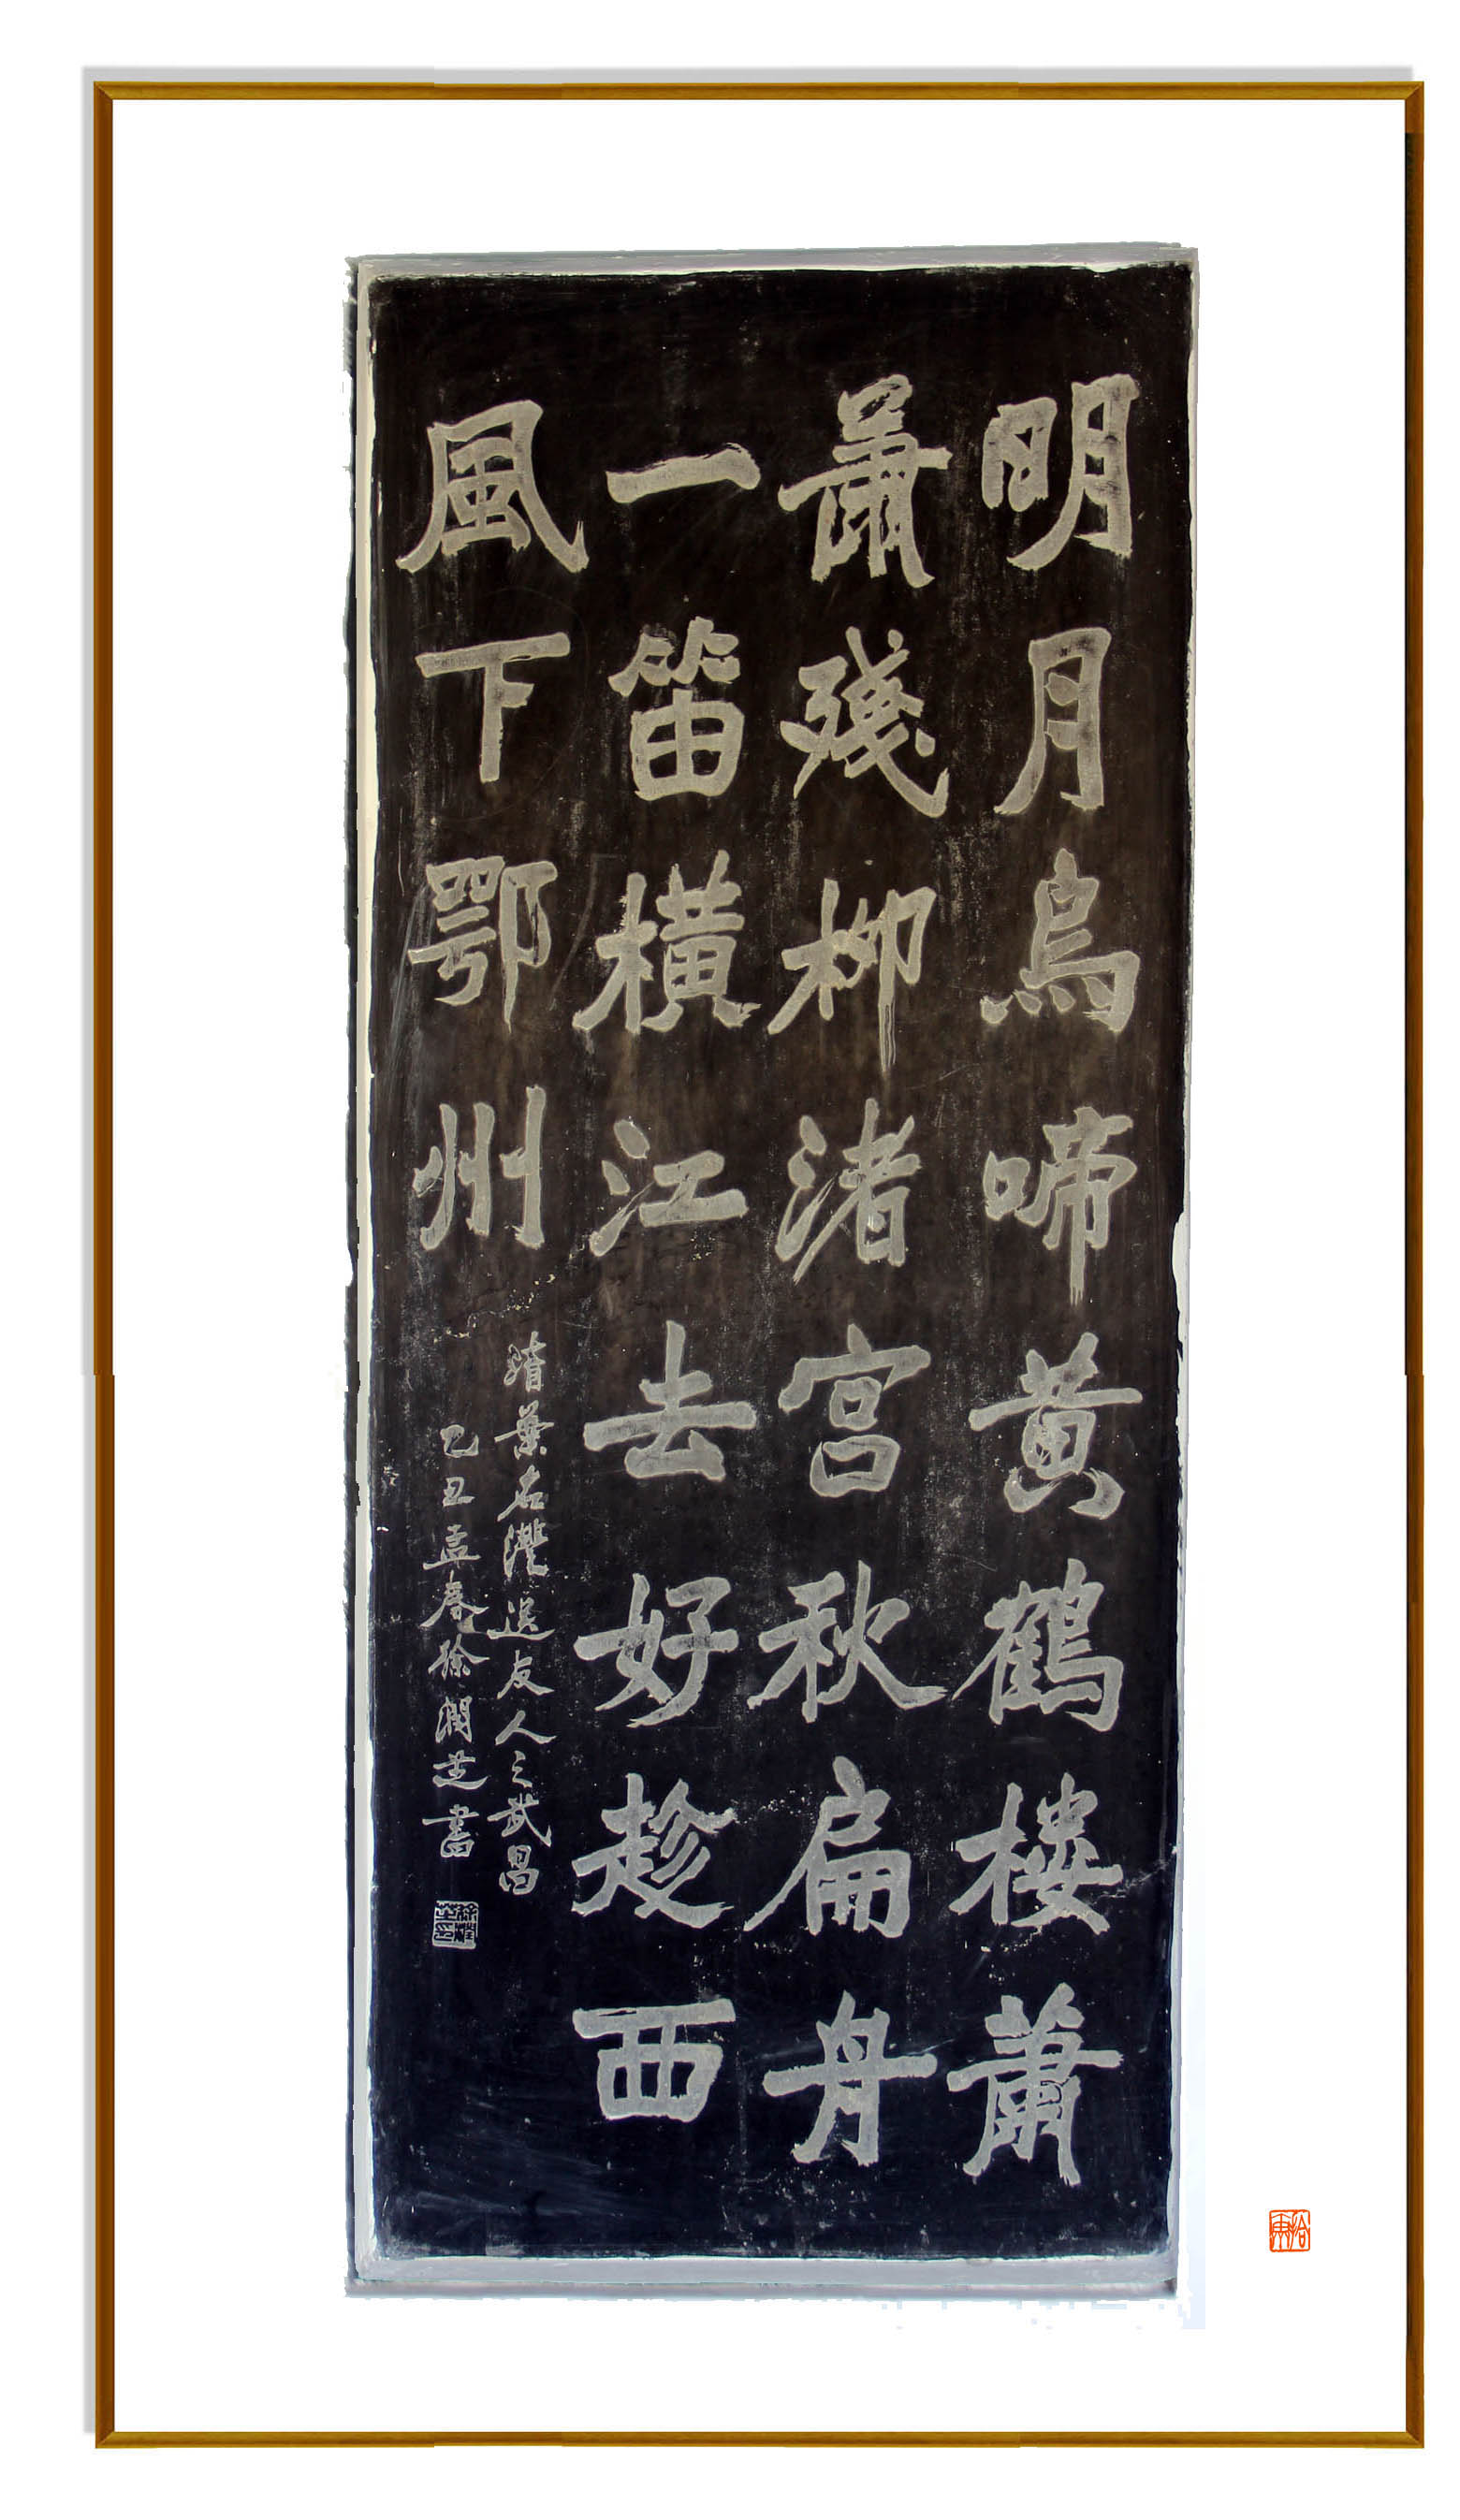 明月烏啼黄鶴樓蕭
蕭殘柳渚宫秋扁舟
一笛橫江去好趁西
風下鄂州
清葉名灃送友人之武昌
乙丑孟春徐潤芝書